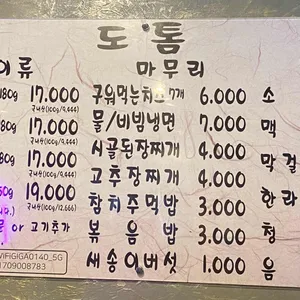 도톰
이류 마무리
180g 17.000 구워먹는치즈 7개 6.000 소
(100g/9,444)
180g 17.000 물/비빔냉면 7.000 맥
(100g/9,444)
180g 17.000 시골된장찌개 4.000 막걸
(100g/9,444)
19.000 고추장찌개 4.000 한라
(100g/12,666)
참치주먹밥 3.000 청
or 고기추가 볶음밥 3.000
새송이버섯 1.000 음
WiFiGIGA0140_5G
1709008783